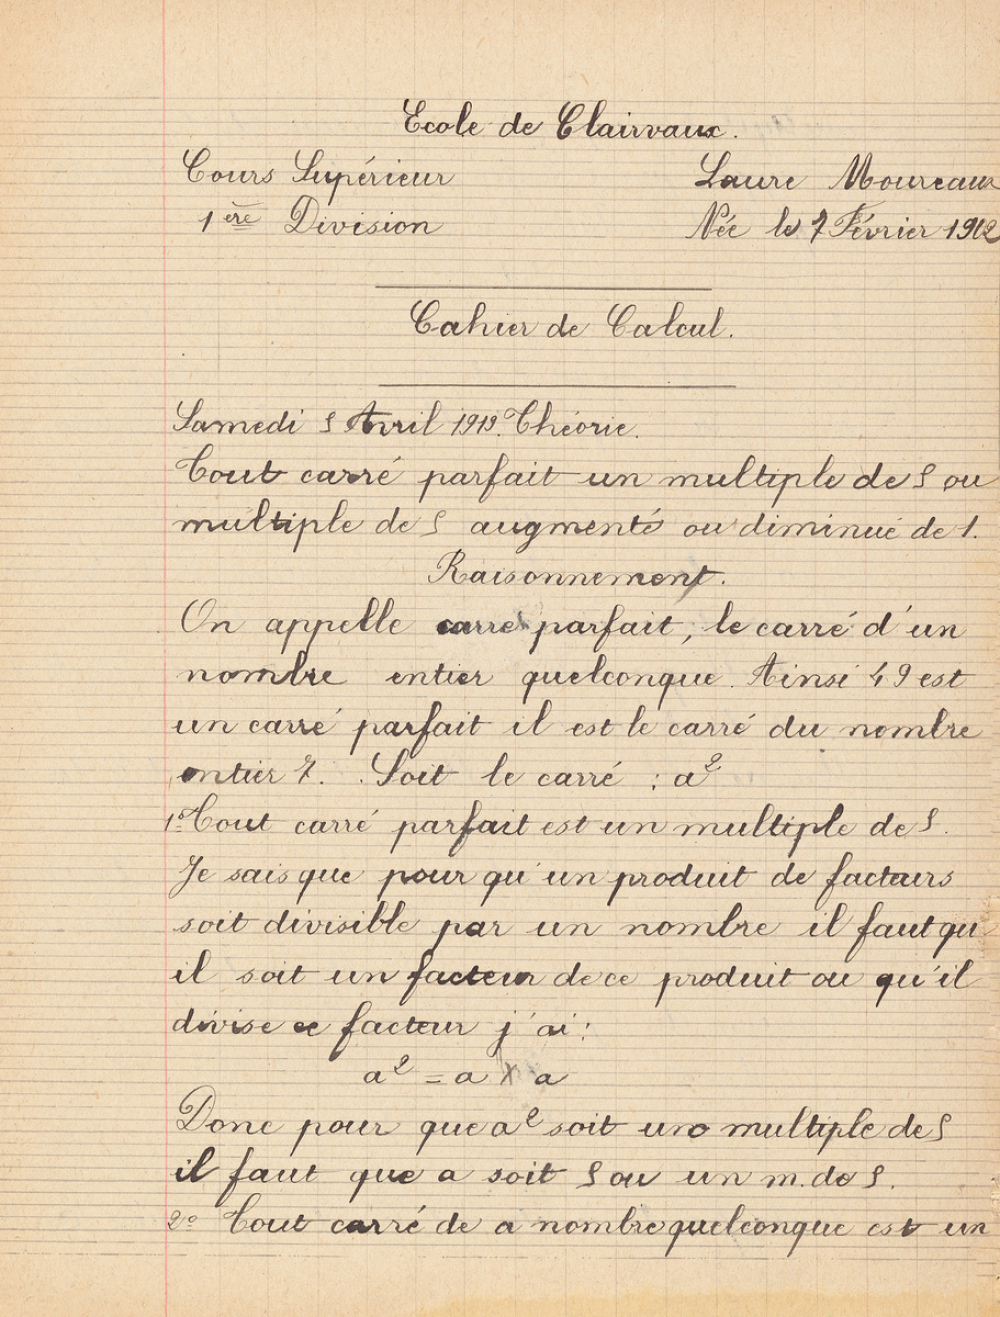 Ecole de Clairvaux.
Cours Supérieur Laure Moureaux
1ère Division Née le 7 Février 1912
Cahier de Calcul.
Samedi 5 Avril 1913. Théorie.
Tout carré parfait un multiple de 5 ou
multiple de 5 augmenté ou diminué de 1.
Raisonnement.
On appelle carré parfait, le carré d'un
nombre entier quelconque. Ainsi 49 est
un carré parfait il est le carré du nombre
entier 7. Soit le carré : a²
1° Tout carré parfait est un multiple de 5.
Je sais que pour qu'un produit de facteurs
soit divisible par un nombre il faut qu'
il soit un facteur de ce produit ou qu'il
divise ce facteur j'ai :
a² = a X a
Donc pour que a² soit un multiple de 5
il faut que a soit 5 ou un m. de 5.
2° Tout carré de a nombre quelconque est un